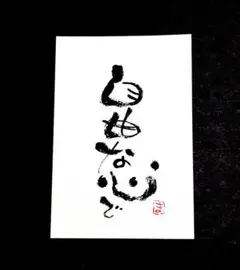 自由な心で